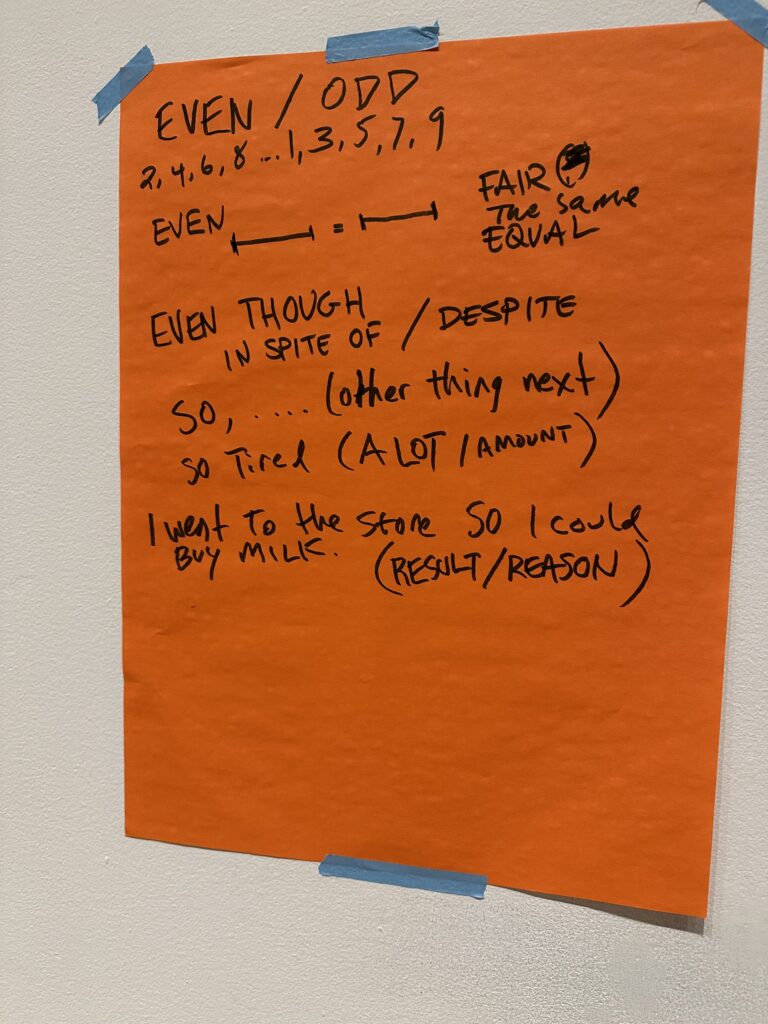 EVEN / ODD
2, 4, 6, 8 ... 1, 3, 5, 7, 9
EVEN =
FAIR
The same
EQUAL
EVEN THOUGH
IN SPITE OF / DESPITE
SO, .... (other thing next)
so Tired (A LOT / AMOUNT)
I went To the store SO I could
BUY MILK.
(RESULT/REASON)